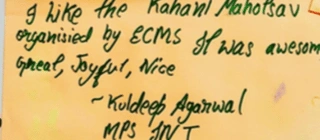 I Like the Kahani Mahotsav
organisied by ECMS It was awesom
Great, Joyful, Nice
~ Kuldeep Agarwal
MPS INT